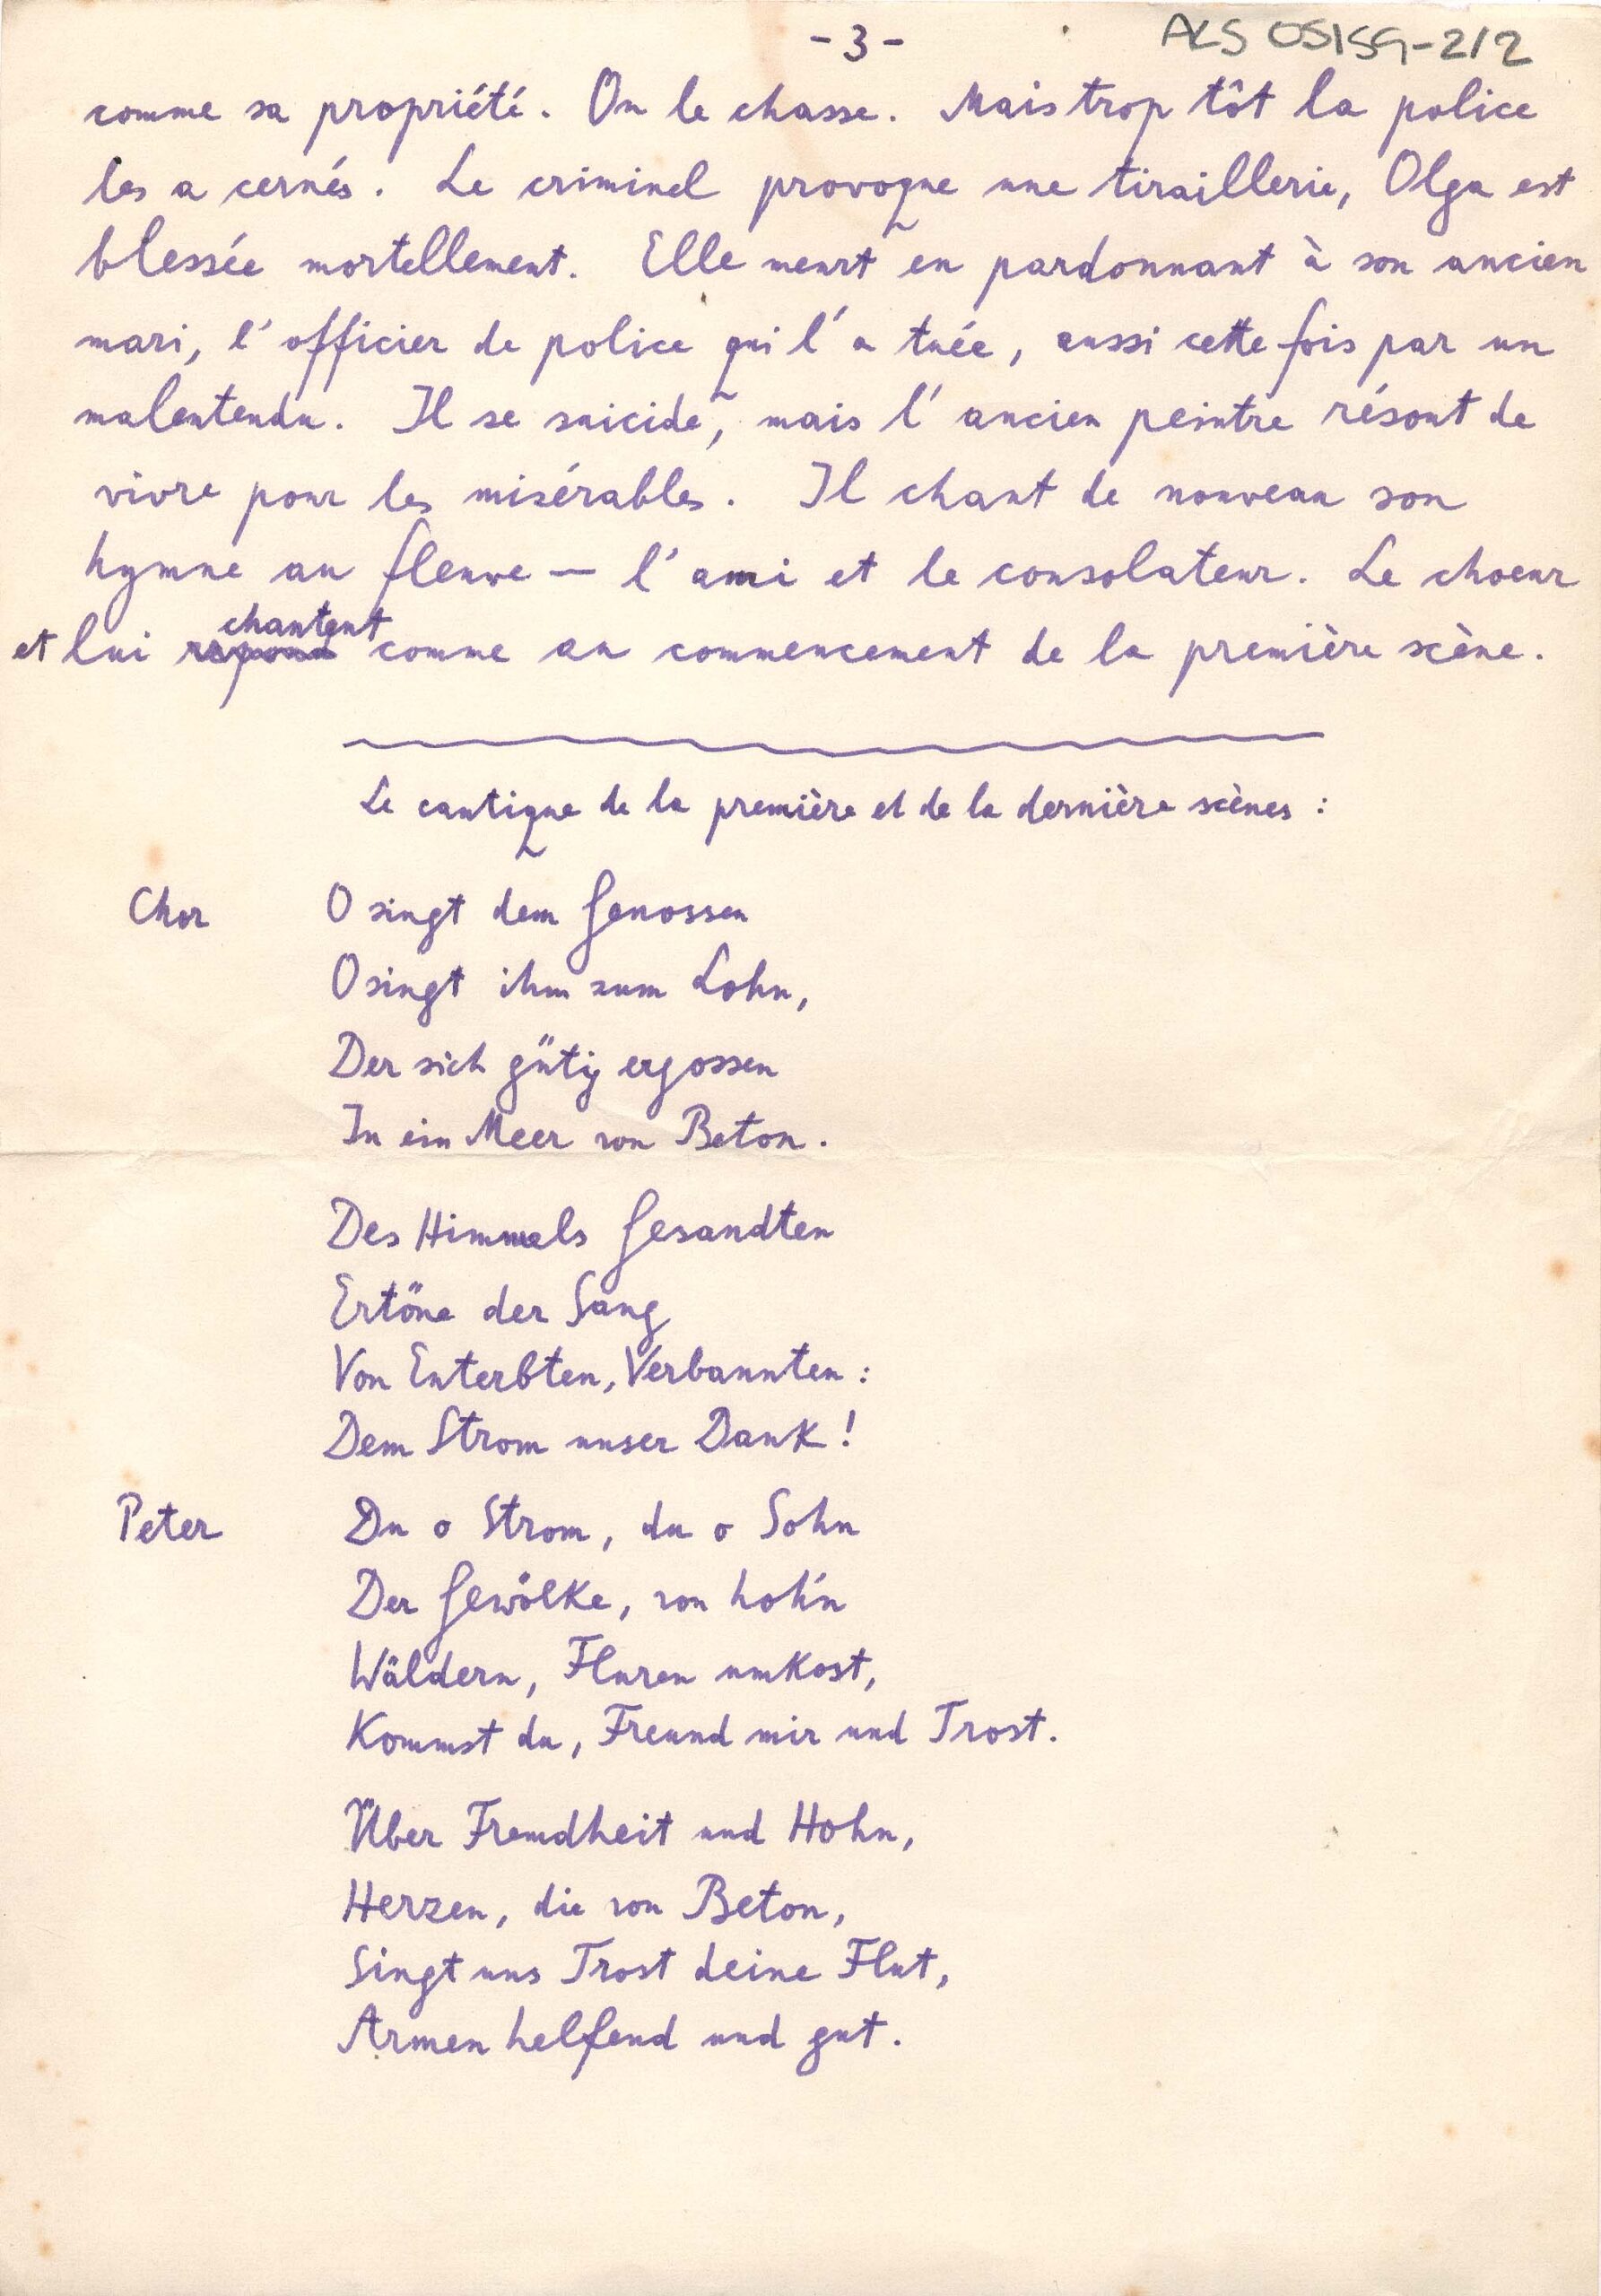 - 3 -
ALS OS159-2/2
comme sa propriété. On le chasse. Mais trop tôt la police
les a cernés. Le criminel provoque une tiraillerie, Olga est
blessée mortellement. Elle meurt en pardonnant à son ancien
mari, l'officier de police qui l'a tuée, aussi cette fois par un
malentendu. Il se suicide, mais l'ancien peintre résout de
vivre pour les misérables. Il chant de nouveau son
hymne au fleuve — l'ami et le consolateur. Le choeur
chantent
et lui repond comme au commencement de la première scène.
Le cantique de la première et de la dernière scènes :
Chor O singt dem Genossen
O singt ihm zum Lohn,
Der sich gütig ergossen
In ein Meer von Beton.
Des Himmels Gesandten
Ertöne der Sang
Von Enterbten, Verbannten :
Dem Strom unser Dank !
Peter Du o Strom, du o Sohn
Der Gewölke, von hoh'n
Wäldern, Fluren umkost,
Kommst du, Freund mir und Trost.
Über Fremdheit und Hohn,
Herzen, die von Beton,
Singt uns Trost deine Flut,
Armen helfend und gut.